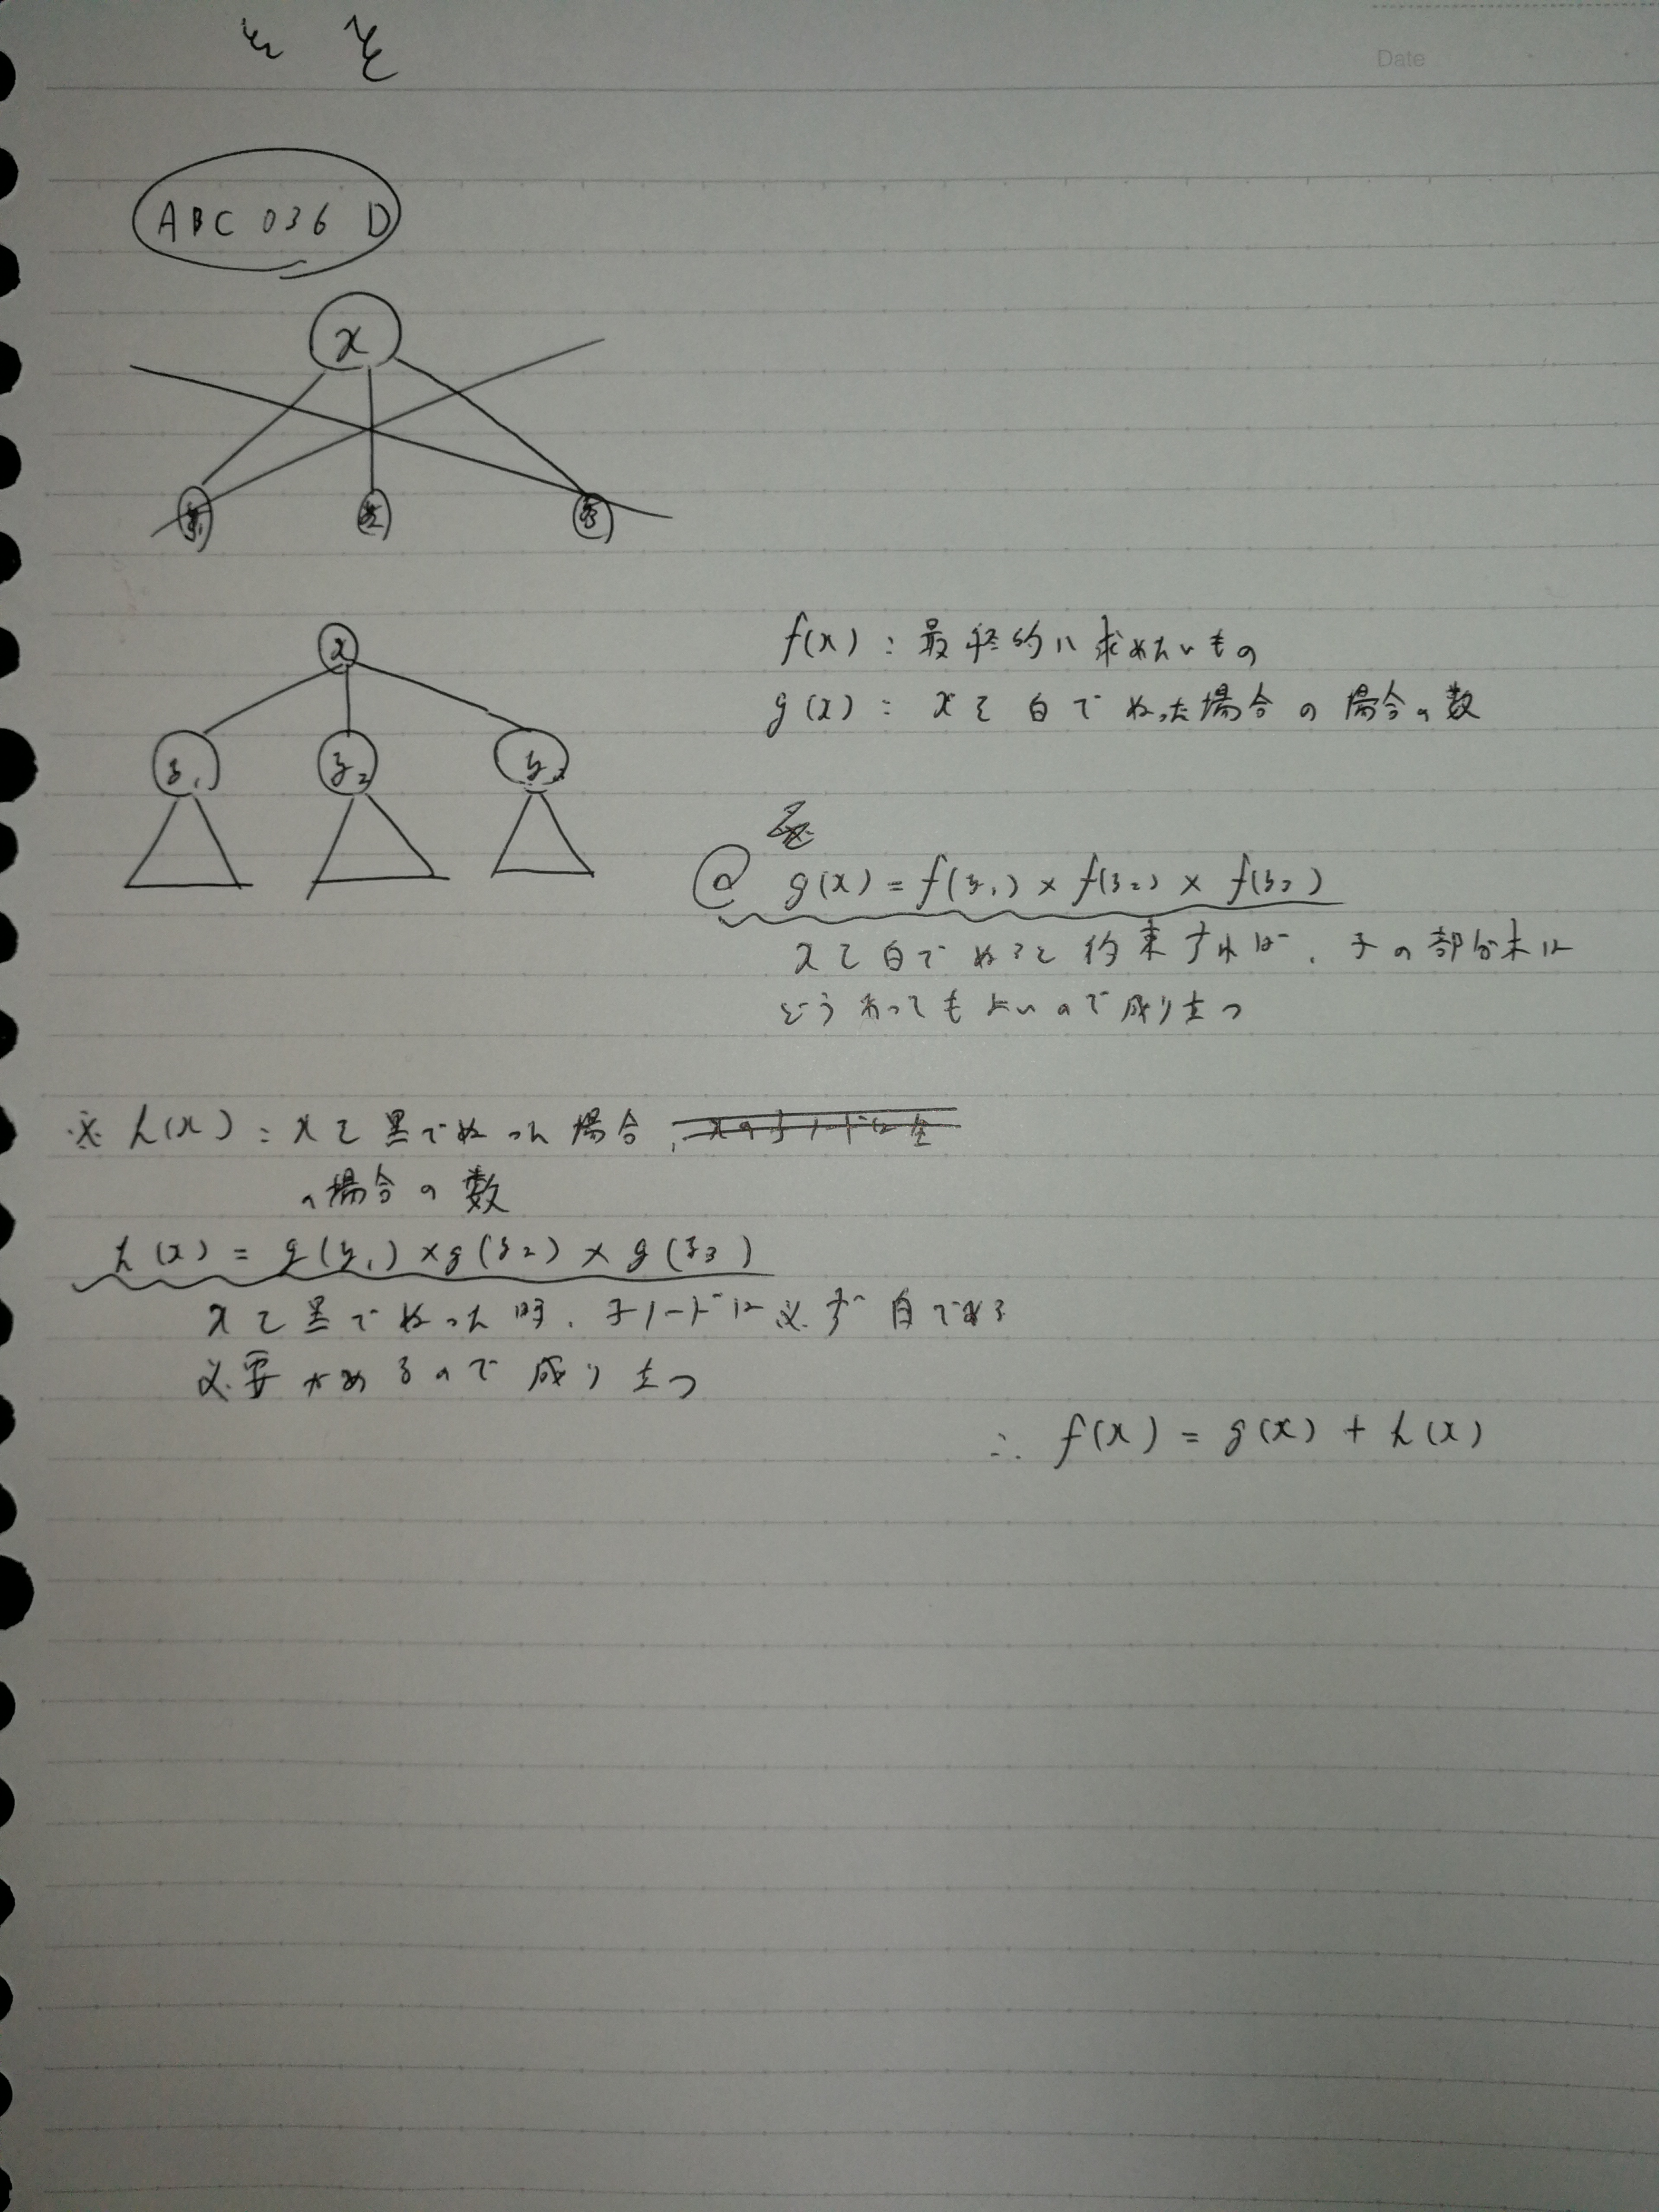 Date
ABC 036 D
x
x
y₁ y₂ y₃
f(x) : 最終的に求めたいもの
g(x) : xを白でぬった場合の場合の数
@ g(x) = f(y₁) × f(y₂) × f(y₃)
xを白でぬると約束すれば、子の部分木は
どうあってもよいので成り立つ
※ h(x) : xを黒でぬった場合
の場合の数
h(x) = g(y₁) × g(y₂) × g(y₃)
xを黒でぬった時、子ノードは必ず白でぬる
必要があるので成り立つ
∴ f(x) = g(x) + h(x)